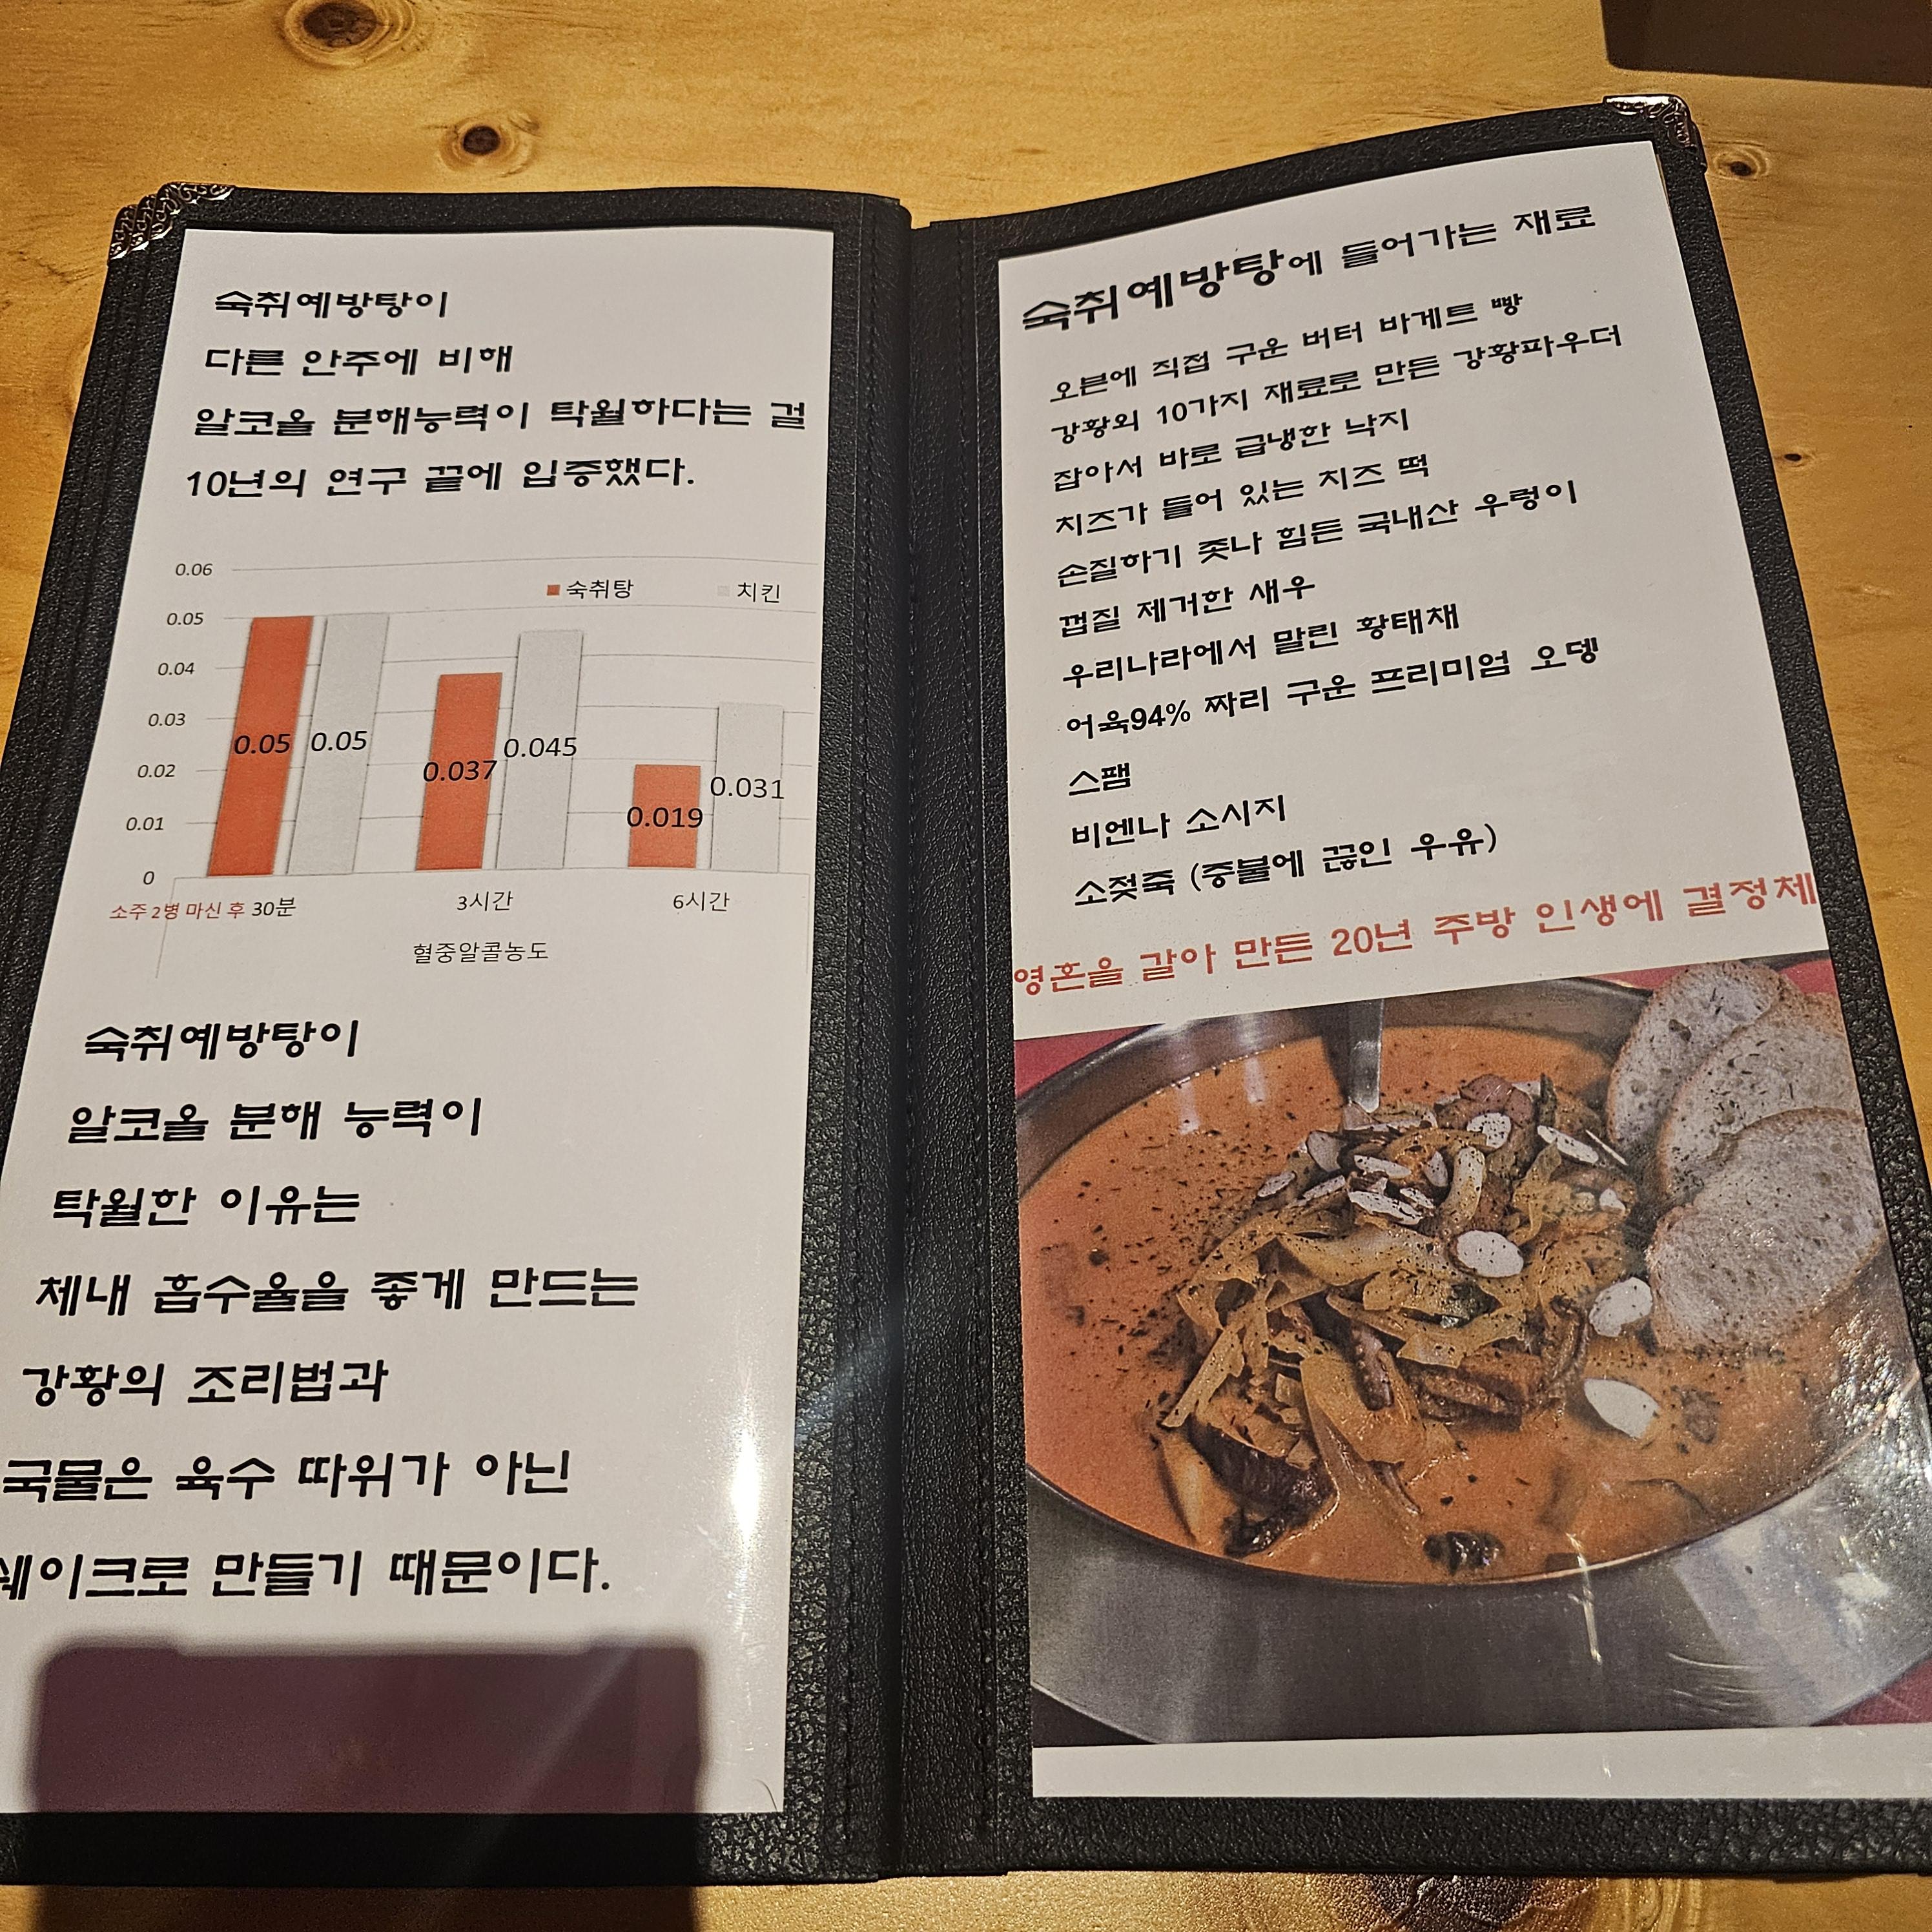 숙취예방탕이
다른 안주에 비해
알코올 분해능력이 탁월하다는 걸
10년의 연구 끝에 입증했다.
0.06
숙취탕 치킨
0.05
0.04
0.03
0.02
0.01
0
0.05 0.05
0.037 0.045
0.019 0.031
소주 2병 마신 후 30분 3시간 6시간
혈중알콜농도
숙취예방탕이
알코올 분해 능력이
탁월한 이유는
체내 흡수율을 좋게 만드는
강황의 조리법과
국물은 육수 따위가 아닌
쉐이크로 만들기 때문이다.
숙취예방탕에 들어가는 재료
오븐에 직접 구운 버터 바게트 빵
강황외 10가지 재료로 만든 강황파우더
잡아서 바로 급냉한 낙지
치즈가 들어 있는 치즈 떡
손질하기 좃나 힘든 국내산 우렁이
껍질 제거한 새우
우리나라에서 말린 황태채
어육94% 짜리 구운 프리미엄 오뎅
스팸
비엔나 소시지
소젖죽 (중불에 끊인 우유)
영혼을 갈아 만든 20년 주방 인생에 결정체